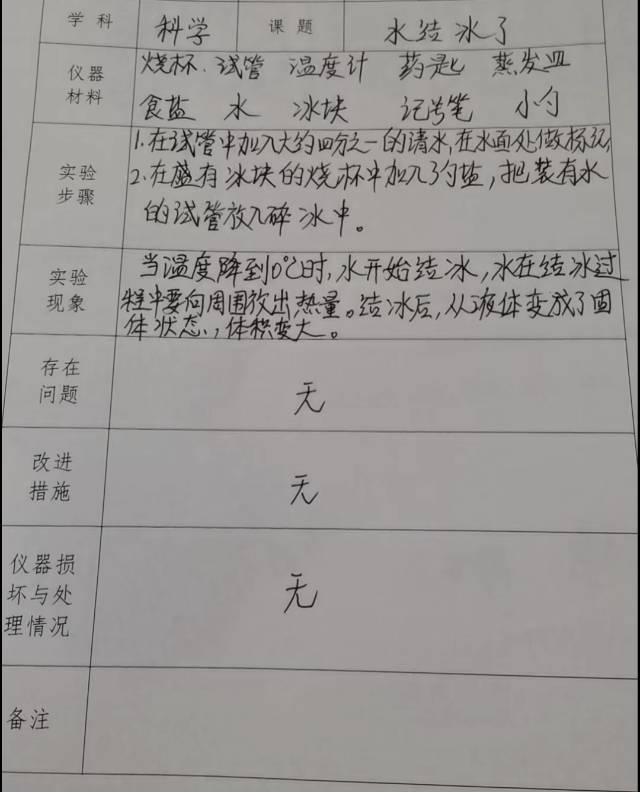 学科 科学 课题 水结冰了
仪器 烧杯 试管 温度计 药匙 蒸发皿
材料 食盐 水 冰块 记号笔 小勺
1.在试管中加入大约四分之一的清水,在水面处做标记,
实验 2.在盛有冰块的烧杯中加入了勺盐,把装有水
步骤 的试管放入碎冰中。
当温度降到0℃时,水开始结冰,水在结冰过
实验 程中要向周围放出热量。结冰后,从液体变成了固
现象 体状态,体积变大。
存在
问题 无
改进
措施 无
仪器损
坏与处 无
理情况
备注